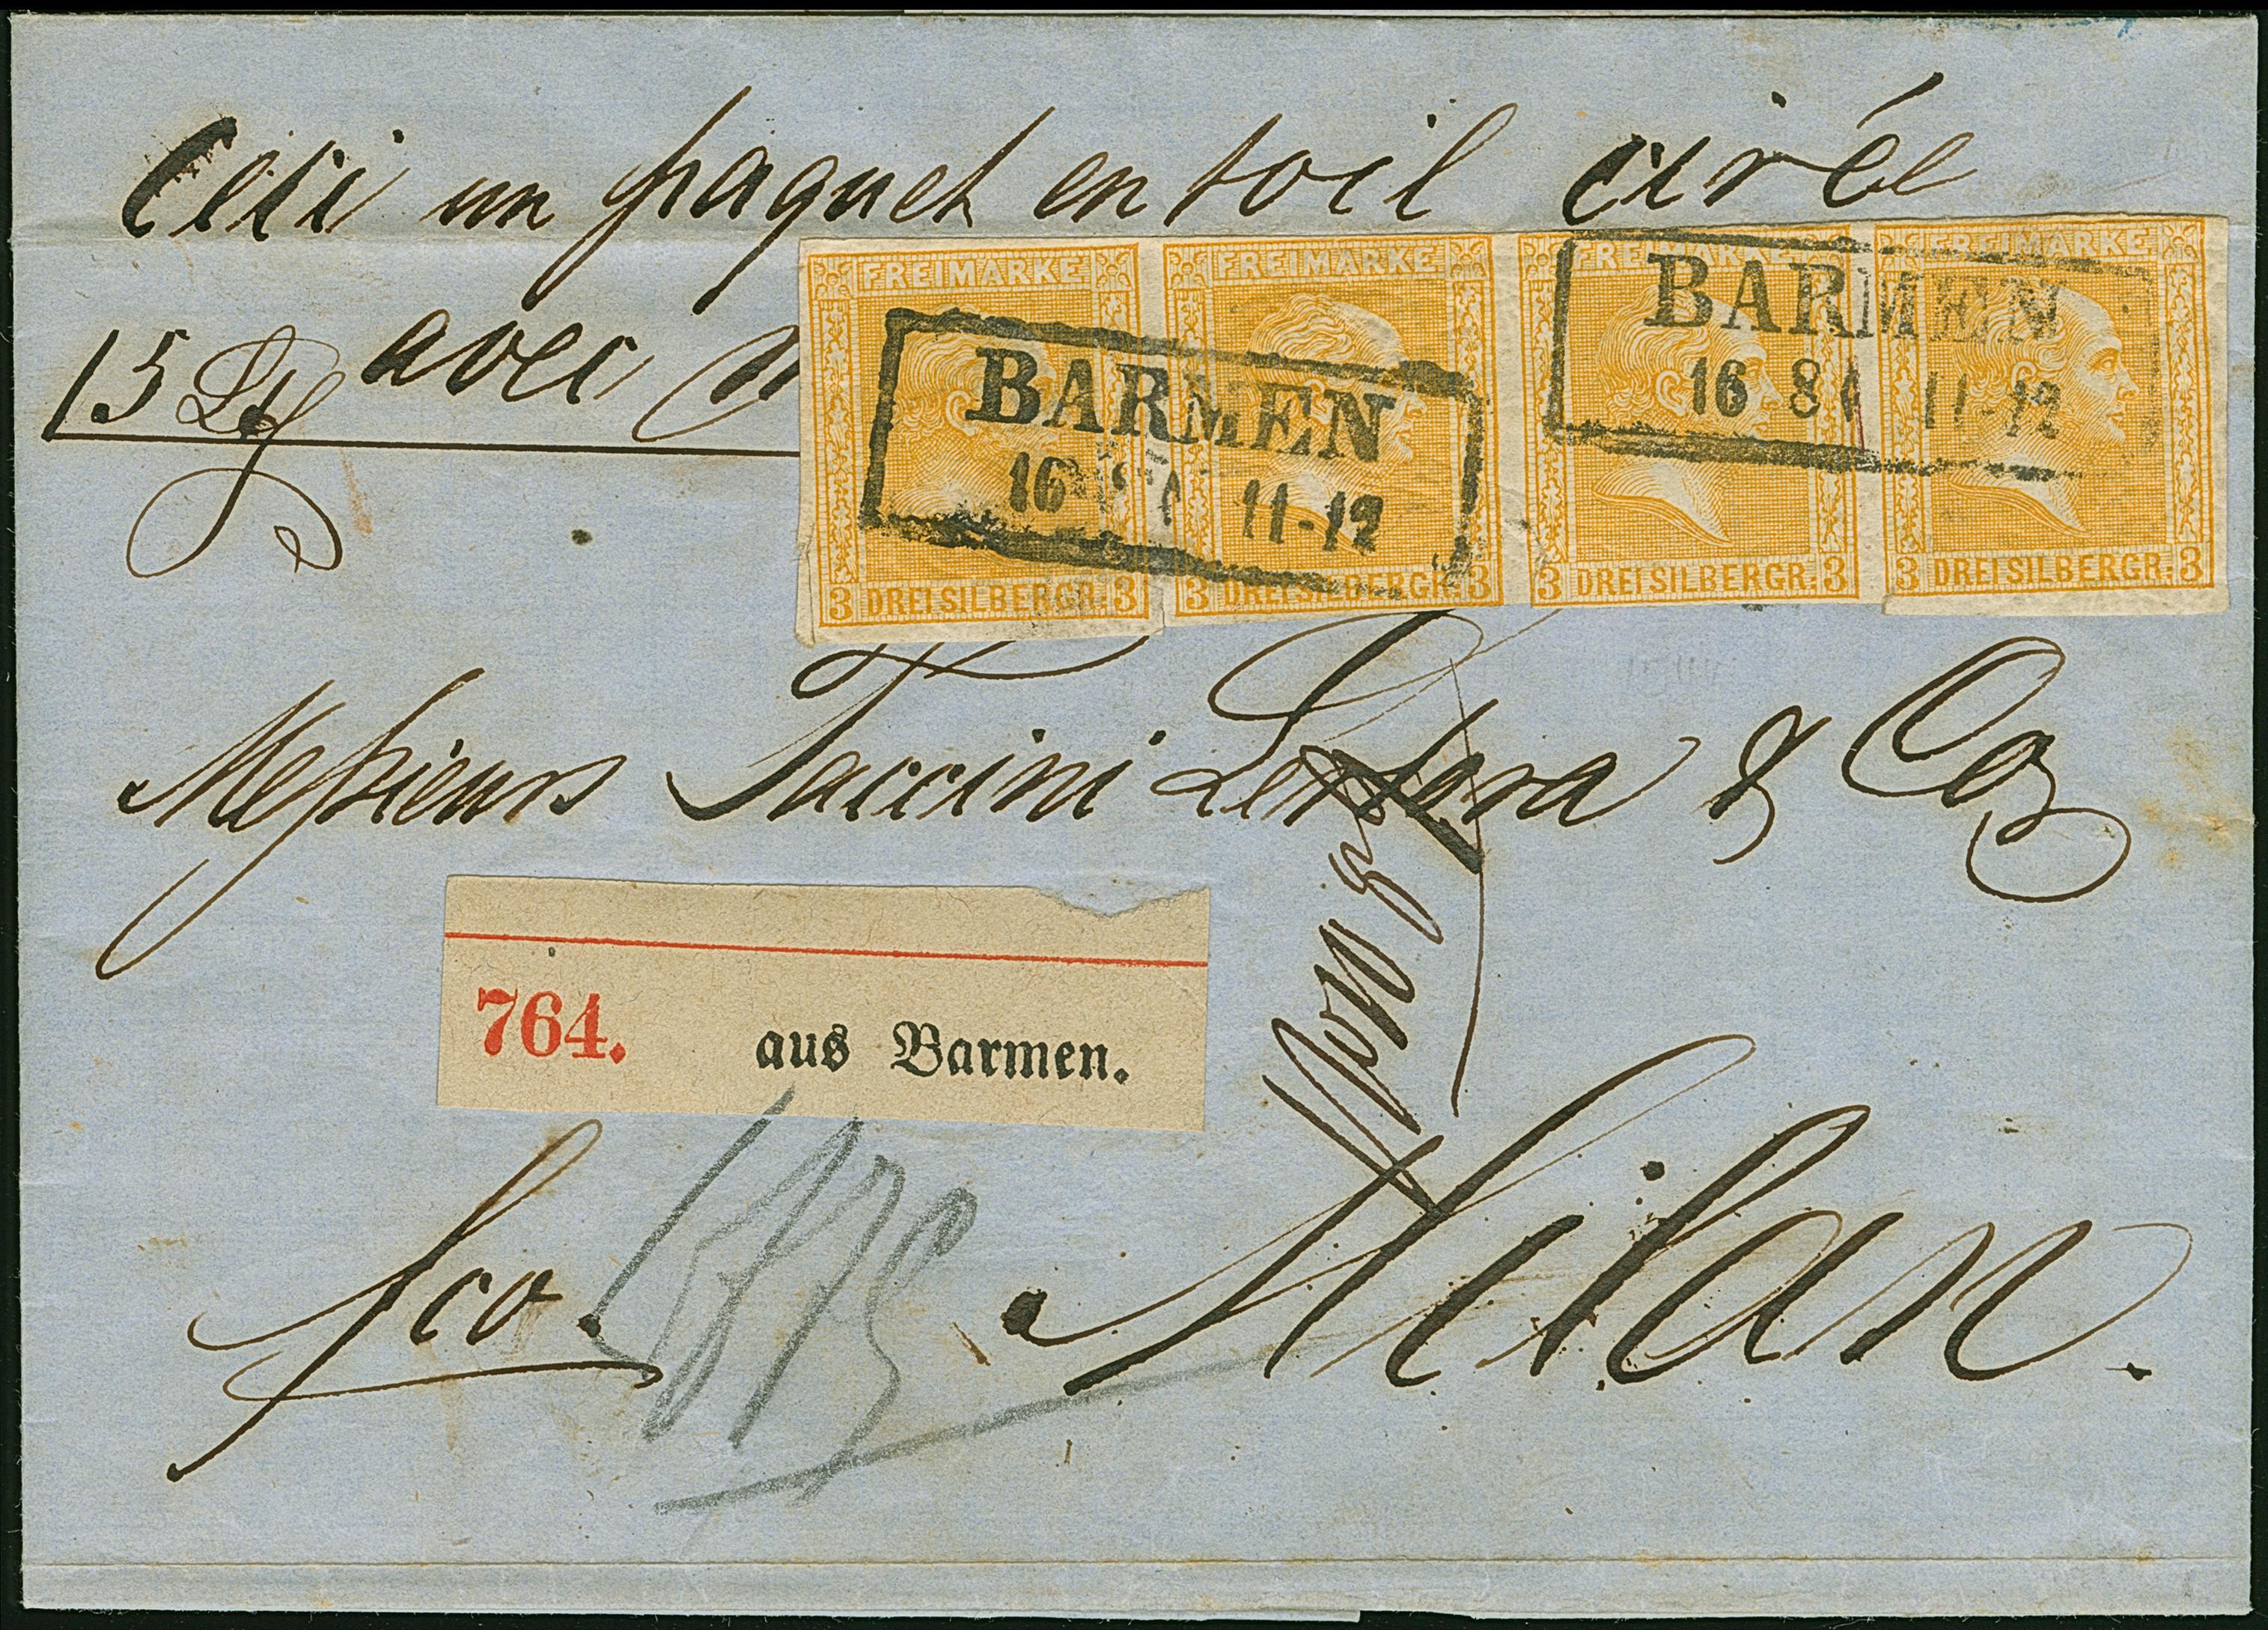 Ceci un paquet en toil cirée
15 avec
FREIMARKE FREIMARKE FREIMARKE FREIMARKE
BARMEN
16 8 11-12
BARMEN
16 8 11-12
3 DREI SILBERGR. 3 3 DREI SILBERGR. 3 3 DREI SILBERGR: 3 3 DREI SILBERGR: 3
Messieurs Taccini & Co
764. aus Barmen.
fco. Milan.